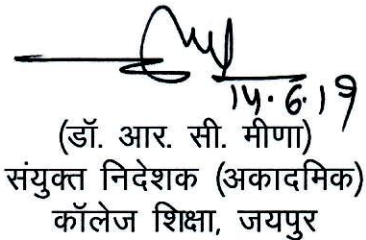 14.6.19
(डॉ. आर. सी. मीणा)
संयुक्त निदेशक (अकादमिक)
कॉलेज शिक्षा, जयपुर